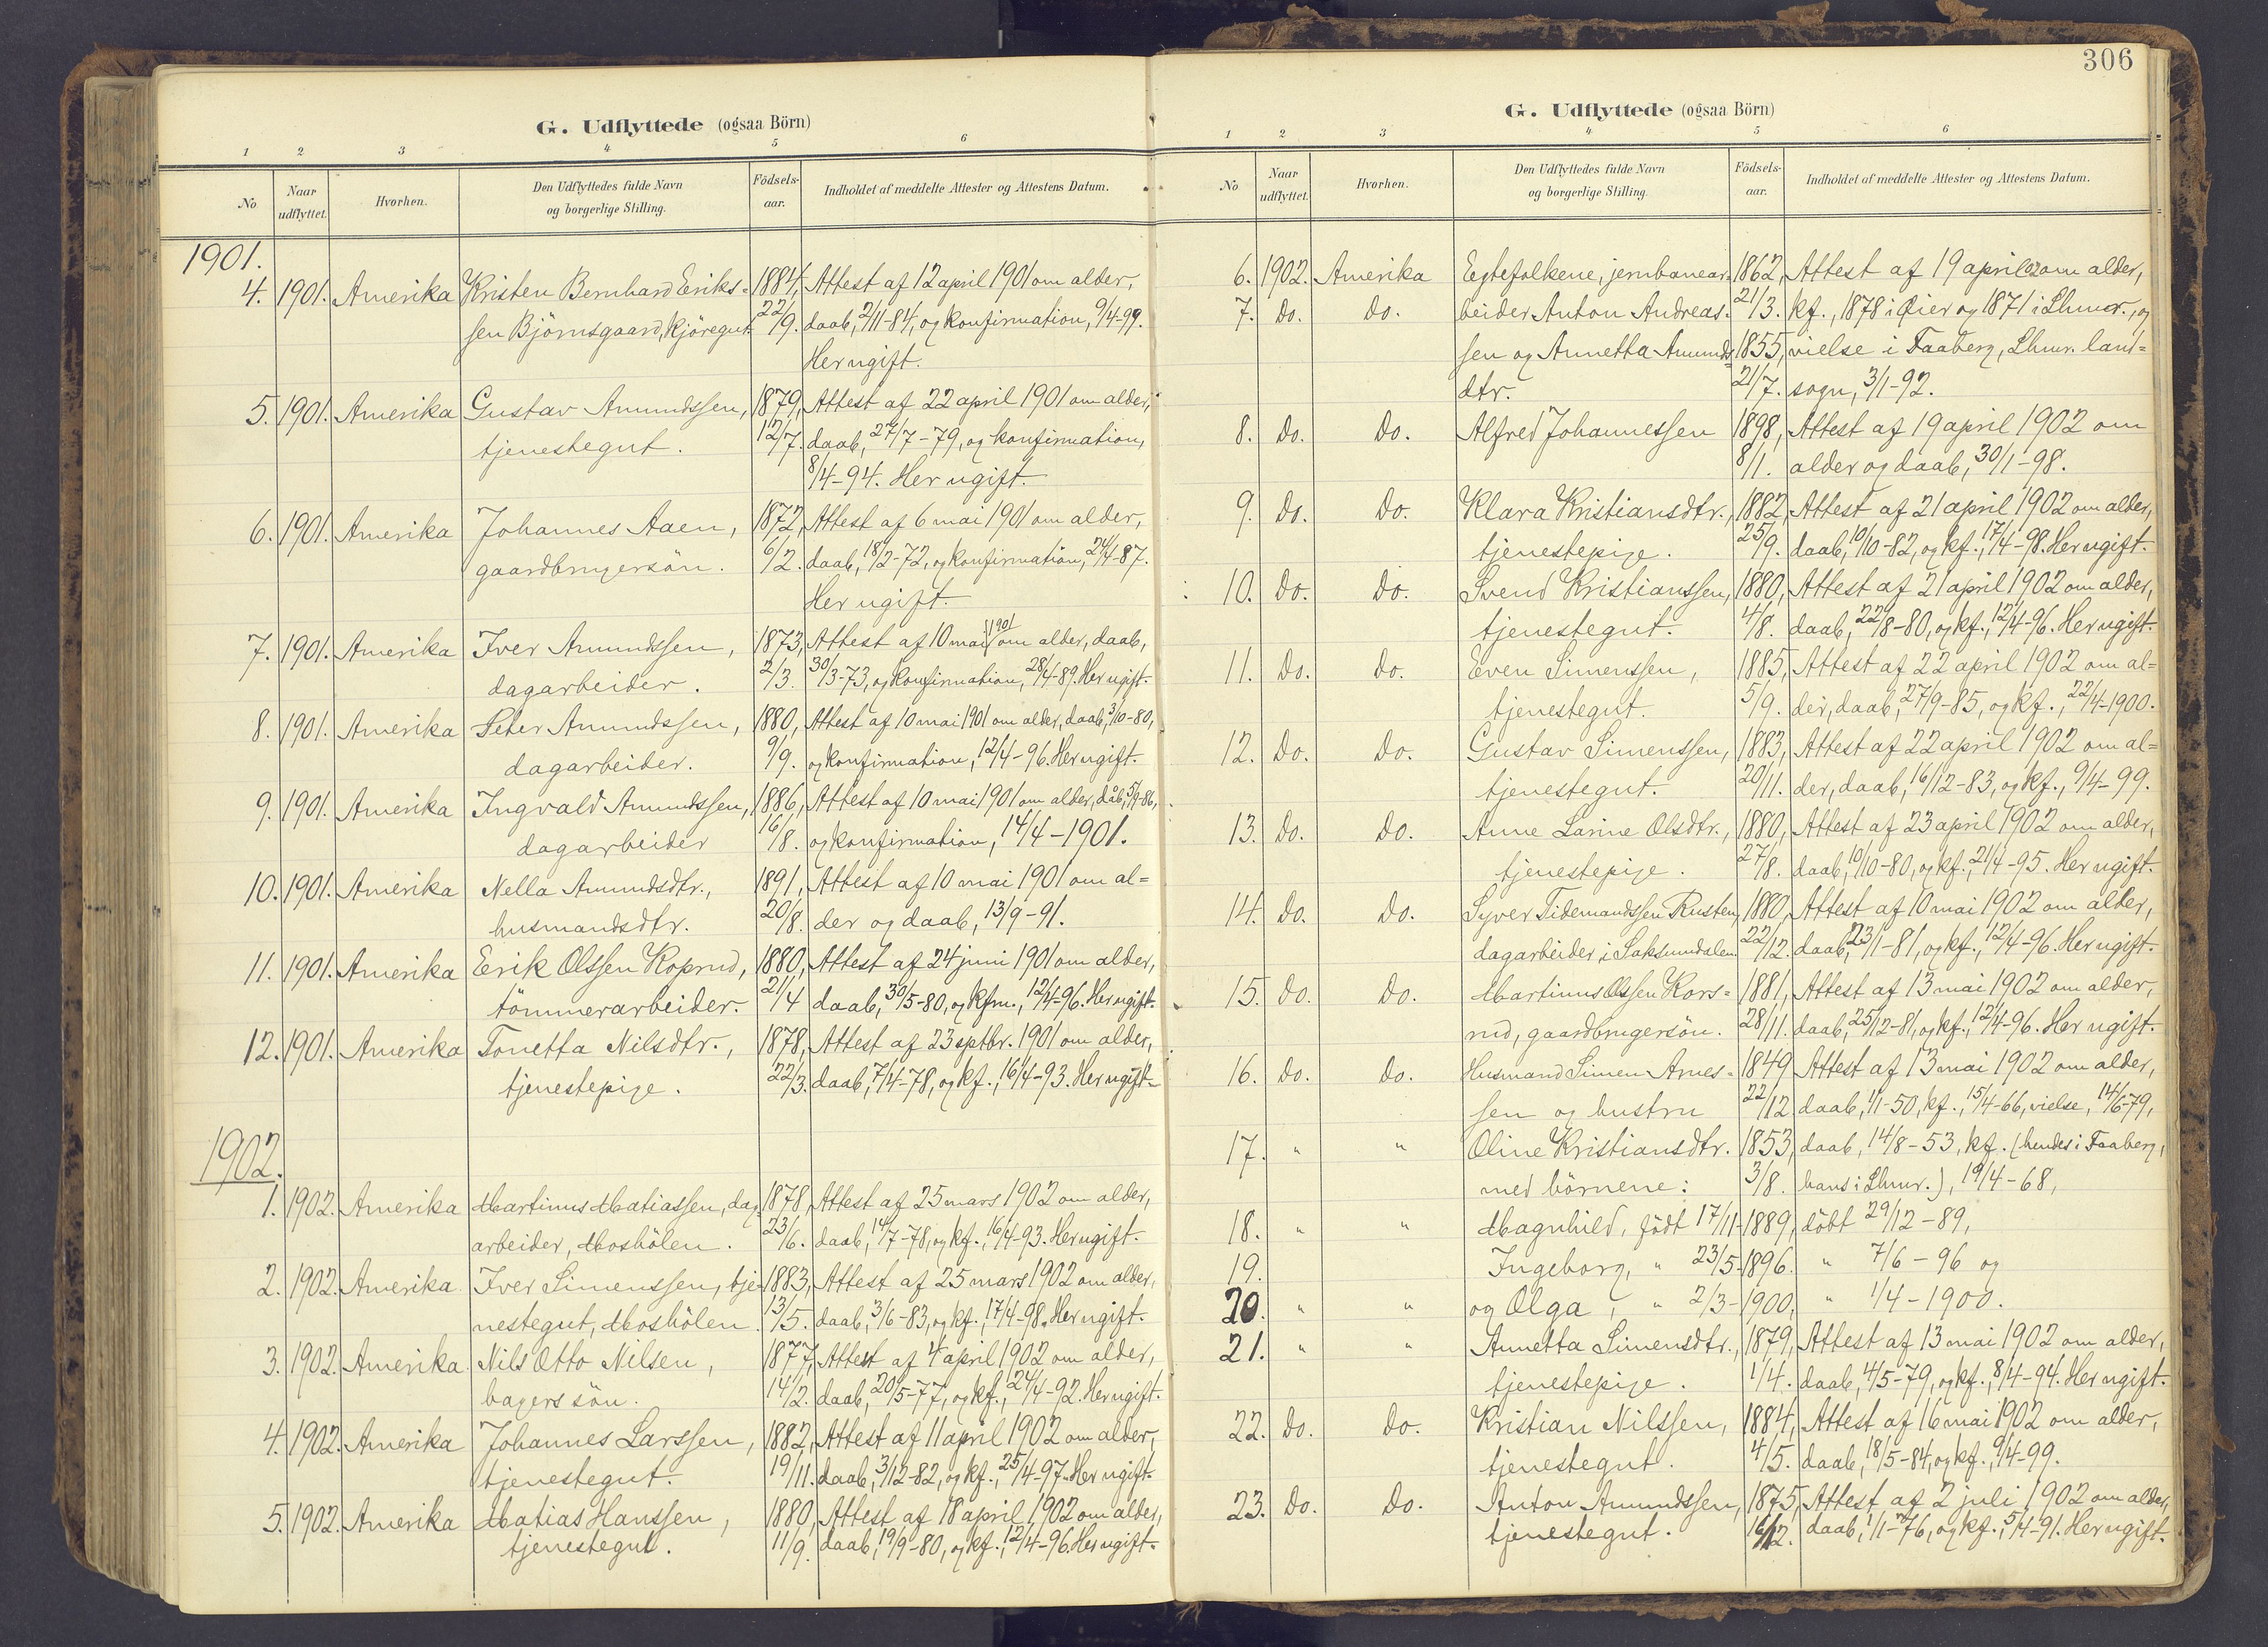 G. Udflyttede (ogsaa Börn)
1 2 3 4 5 6
No Naar udflyttet. Hvorhen. Den Udflyttedes fulde Navn og borgerlige Stilling. Födsels-aar. Indholdet af meddelte Attester og Attestens Datum.
1901.
4. 1901. Amerika Kristen Bernhard Eriks- 1884, Attest af 12 april 1901 om alder,
sen Björnsgaard, kjöregut 22/9. daab, 2/11-84, og konfirmation, 9/4-99.
Her ugift.
5. 1901. Amerika Gustav Amundssen, 1879, Attest af 22 april 1901 om alder,
tjenestegut. 12/7. daab, 27/7-79, og konfirmation,
8/4-94. Her ugift.
6. 1901. Amerika Johannes Aaen, 1872, Attest af 6 mai 1901 om alder,
gaardbrugersön. 6/2. daab, 18/2-72, og konfirmation, 24/4-87.
Her ugift.
7. 1901. Amerika Iver Amundssen, 1873, Attest af 10 mai 1901 om alder, daab,
dagarbeider. 2/3. 30/3-73, og konfirmation, 28/4-89. Her ugift.
8. 1901. Amerika Peter Amundssen, 1880, Attest af 10 mai 1901 om alder, daab, 3/10-80,
dagarbeider. 9/9. og konfirmation, 12/4-96. Her ugift.
9. 1901. Amerika Ingvald Amundssen, 1886, Attest af 10 mai 1901 om alder, dåb, 5/9-86,
dagarbeider 16/8. og konfirmation, 14/4-1901.
10. 1901. Amerika Nella Amundsdtr., 1891, Attest af 10 mai 1901 om al-
husmandsdtr. 20/8. der og daab, 13/9-91.
11. 1901. Amerika Erik Olssen Koprud, 1880, Attest af 24 juni 1901 om alder,
tömmerarbeider. 21/4 daab, 30/5-80, og kfm., 12/4-96. Her ugift.
12. 1901. Amerika Tonetta Nilsdtr., 1878, Attest af 23 septbr. 1901 om alder,
tjenestepige. 22/3. daab, 7/4-78, og kf., 16/4-93. Her ugift.
1902.
1. 1902. Amerika Martinus Matiassen, dag- 1878, Attest af 25 mars 1902 om alder,
arbeider, Moshölen. 23/6. daab, 14/7-78, og kf., 16/4-93. Her ugift.
2. 1902. Amerika Iver Simenssen, tje- 1883, Attest af 25 mars 1902 om alder,
nestegut, Moshölen. 13/5. daab, 3/6-83, og kf., 17/4-98. Her ugift.
3. 1902. Amerika Nils Otto Nilsen, 1877, Attest af 4 april 1902 om alder,
bagers sön. 14/2. daab, 20/5-77, og kf., 24/4-92. Her ugift.
4. 1902. Amerika Johannes Larssen, 1882, Attest af 11 april 1902 om alder,
tjenestegut. 19/11. daab, 3/12-82, og kf., 25/4-97. Her ugift.
5. 1902. Amerika Matias Hanssen, 1880, Attest af 18 april 1902 om alder,
tjenestegut. 11/9. daab, 19/9-80, og kf., 12/4-96. Her ugift.
306
G. Udflyttede (ogsaa Börn)
1 2 3 4 5 6
No Naar udflyttet. Hvorhen. Den Udflyttedes fulde Navn og borgerlige Stilling. Födsels-aar. Indholdet af meddelte Attester og Attestens Datum.
6. 1902. Amerika Egtefolkene, jernbanear- 1862, Attest af 19 april 02 om alder,
7. Do. Do. beider Anton Andreas- 21/3. kf., 1878 i Øier og 1871 i Lhmr., og
sen og Annetta Amunds- 1855, vielse i Faaberg, Lhmr. land-
dtr. 21/7. sogn, 3/1-92.
8. Do. Do. Alfred Johannessen 1898, Attest af 19 april 1902 om
8/1. alder og daab, 30/1-98.
9. Do. Do. Klara Kristiansdtr., 1882, Attest af 21 april 1902 om alder,
tjenestepige. 25/9. daab, 10/10-82, og kf., 17/4-98. Her ugift.
10. Do. Do. Svend Kristianssen, 1880, Attest af 21 april 1902 om alder,
tjenestegut. 4/8. daab, 22/8-80, og kf., 12/4-96. Her ugift.
11. Do. Do. Even Simenssen, 1885, Attest af 22 april 1902 om al-
tjenestegut. 5/9. der, daab, 27/9-85, og kf., 22/4-1900.
12. Do. Do. Gustav Simenssen, 1883, Attest af 22 april 1902 om al-
tjenestegut. 20/11. der, daab, 16/12-83, og kf., 9/4-99.
13. Do. Do. Anne Larine Olsdtr., 1880, Attest af 23 april 1902 om alder,
tjenestepige. 27/8. daab, 10/10-80, og kf., 21/4-95. Her ugift.
14. Do. Do. Syver Tidemandssen Rusten, 1880, Attest af 10 mai 1902 om alder,
dagarbeider i Saksumdalen. 22/12. daab, 23/1-81, og kf., 12/4-96. Her ugift.
15. Do. Do. Martinus Olssen Kors- 1881, Attest af 13 mai 1902 om alder,
rud, gaardbrugersön. 28/11. daab, 25/12-81, og kf., 12/4-96. Her ugift.
16. Do. Do. Husmand Simen Arnes- 1849 Attest af 13 mai 1902 om alder,
sen og hustru 22/12 daab, 1/1-50, kf., 15/4-66, vielse, 14/6-79,
17. " " Oline Kristiansdtr. 1853, daab, 14/8-53, kf. (hendes i Faaberg,
med börnene: 3/8. hans i Lhmr.), 19/4-68,
18. " " Magnhild, födt 17/11-1889, döbt 29/12-89,
19. Ingeborg, " 23/5-1896. " 7/6-96 og
20. " " og Olga, " 2/3-1900, " 1/4-1900.
21. " " Annetta Simensdtr., 1879, Attest af 13 mai 1902 om alder,
tjenestepige. 1/4. daab, 4/5-79, og kf., 8/4-94. Her ugift.
22. Do. Do. Kristian Nilssen, 1884, Attest af 16 mai 1902 om alder,
tjenestegut. 4/5. daab, 18/5-84, og kf., 9/4-99.
23. Do. Do. Anton Amundssen, 1875, Attest af 2 juli 1902 om alder,
tjenestegut. 16/12. daab, 1/1-76, og kf., 5/4-91. Her ugift.